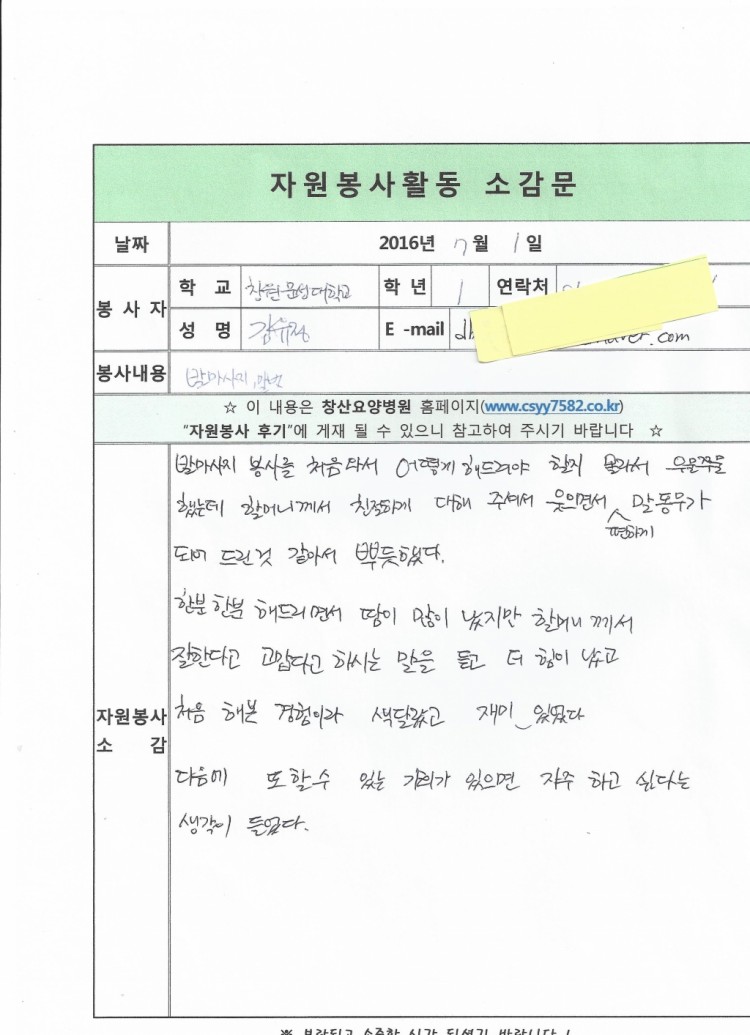 자원봉사활동 소감문
날짜 2016년 7월 1일
봉사자 학교 창원문성대학교 학년 1 연락처
성명 김유정 E-mail naver.com
봉사내용 발마사지, 말벗
☆ 이 내용은 창산요양병원 홈페이지(www.csyy7582.co.kr)
"자원봉사 후기"에 게재 될 수 있으니 참고하여 주시기 바랍니다 ☆
자원봉사 소감
발마사지 봉사를 처음 와서 어떻게 해드려야 할지 몰라서 우물쭈물
했는데 할머니께서 친절하게 대해 주셔서 웃으면서 편하게 말동무가
되어 드린것 같아서 뿌듯했다.
한분 한분 해드리면서 땀이 많이 났지만 할머니께서
잘한다고 고맙다고 하시는 말을 듣고 더 힘이 났고
처음 해본 경험이라 색달랐고 재미있었다
다음에 또 할수 있는 기회가 있으면 자주 하고 싶다는
생각이 들었다.